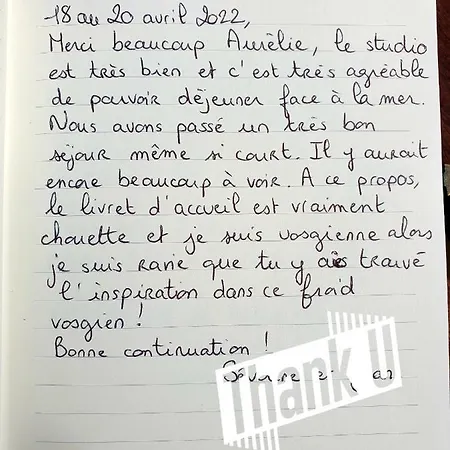 18 au 20 avril 2022,
Merci beaucoup Aurélie, le studio
est très bien et c'est très agréable
de pouvoir déjeuner face à la mer.
Nous avons passé un très bon
séjour même si court. Il y aurait
encore beaucoup à voir. A ce propos,
le livret d'accueil est vraiment
chouette et je suis vosgienne alors
je suis ravie que tu y ais trouvé
l'inspiration dans ce froid
vosgien !
Bonne continuation !
Thank U